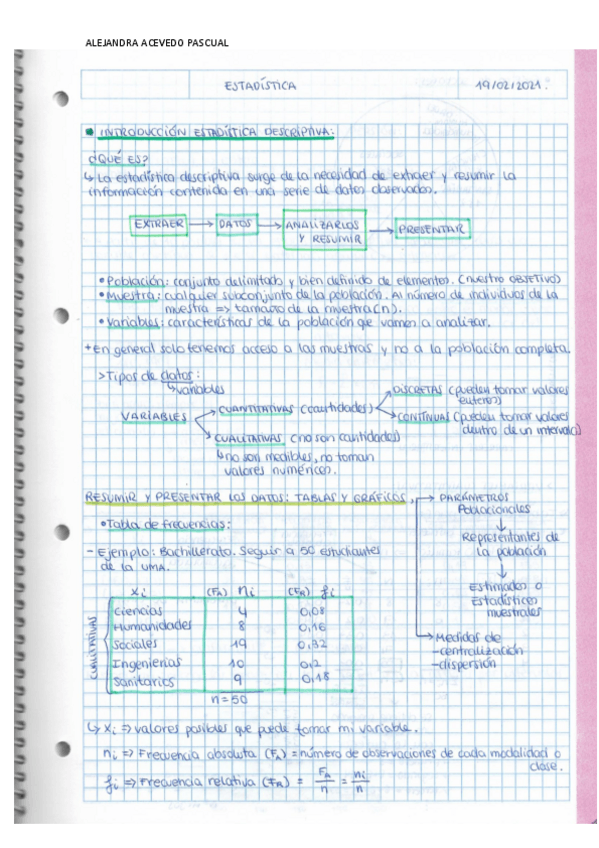 ALEJANDRA ACEVEDO PASCUAL
ESTADÍSTICA 19/02/2021.
INTRODUCCIÓN ESTADÍSTICA DESCRIPTIVA:
¿QUÉ ES?
↳ La estadística descriptiva surge de la necesidad de extraer y resumir la
información contenida en una serie de datos observados.
EXTRAER → DATOS → ANALIZARLOS Y RESUMIR → PRESENTAR
• Población: conjunto delimitado y bien definido de elementos. (nuestro OBJETIVO)
• Muestra: cualquier subconjunto de la población. Al número de individuos de la
muestra => tamaño de la muestra (n).
• Variables: características de la población que vamos a analizar.
* En general solo tenemos acceso a las muestras y no a la población completa.
> Tipos de datos:
↳ variables
VARIABLES
CUANTITATIVAS (cantidades)
DISCRETAS (pueden tomar valores
enteros)
CONTÍNUAS (pueden tomar valores
dentro de un intervalo)
CUALITATIVAS (no son cantidades)
↳ no son medibles, no toman
valores numéricos.
RESUMIR Y PRESENTAR LOS DATOS: TABLAS Y GRÁFICOS,
PARÁMETROS
Poblacionales
↓
Representantes de
la población
↓
Estimados o
Estadísticos
muestrales
Medidas de
-centralización
-dispersión
• Tabla de frecuencias:
- Ejemplo: Bachillerato. Seguir a 50 estudiantes
de la UMA.
xi (FA) ni (FR) fi
CUALITATIVAS
Ciencias 4 0,08
Humanidades 8 0,16
Sociales 19 0,32
Ingenierías 10 0,2
Sanitarios 9 0,18
n = 50
↳ xi => valores posibles que puede tomar mi variable.
ni => Frecuencia absoluta (FA) = número de observaciones de cada modalidad o
clase.
fi => Frecuencia relativa (FR) = FA/n = ni/n